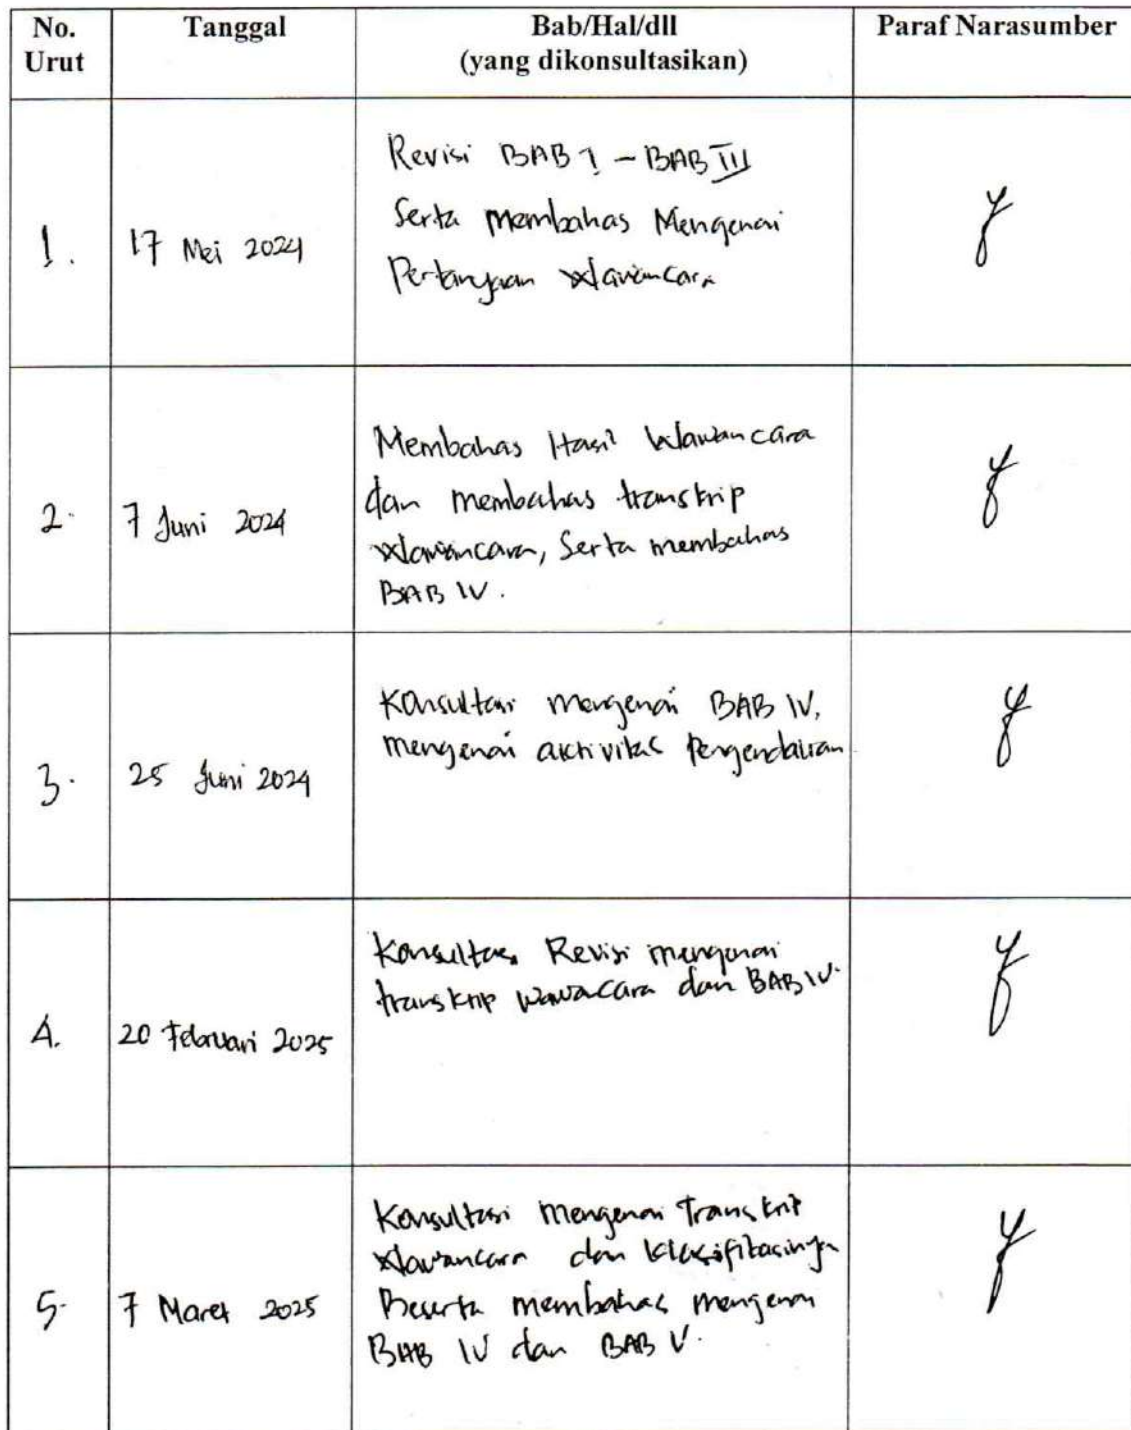 No. Urut Tanggal Bab/Hal/dll (yang dikonsultasikan) Paraf Narasumber
1. 17 Mei 2024
Revisi BAB I - BAB III
Serta membahas Mengenai
Pertanyaan Wawancara
2. 7 Juni 2024
Membahas Hasil Wawancara
dan membahas transkrip
Wawancara, Serta membahas
BAB IV.
3. 25 Juni 2024
Konsultasi mengenai BAB IV,
mengenai aktivitas Pengendalian
4. 20 Februari 2025
Konsultasi Revisi mengenai
transkrip wawacara dan BAB IV.
5. 7 Maret 2025
Konsultasi Mengenai Transkrip
Wawancara dan klasifikasinya
Beserta membahas mengenai
BAB IV dan BAB V.